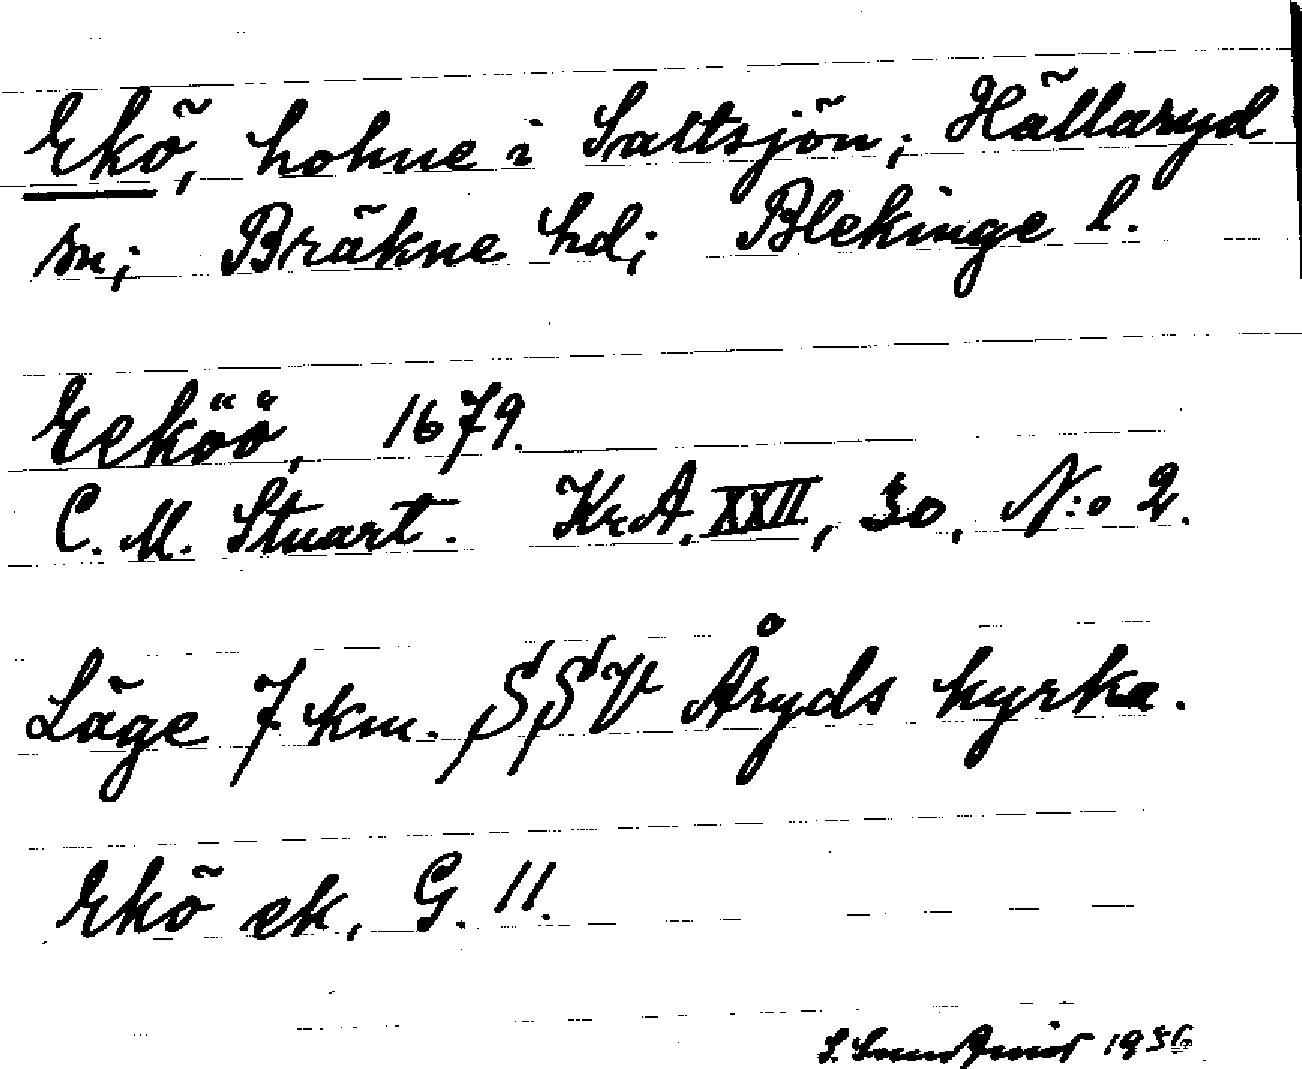 Ekö, holme i Saltsjön; Hällaryd
sn; Bräkne hd; Blekinge l.
Eeköö, 1679.
C. M. Stuart. Kr.A. XXII, 30, N:o 2.
Läge 7 km. SSV Åryds kyrka.
Ekö ek. G. 11.
S. 1936